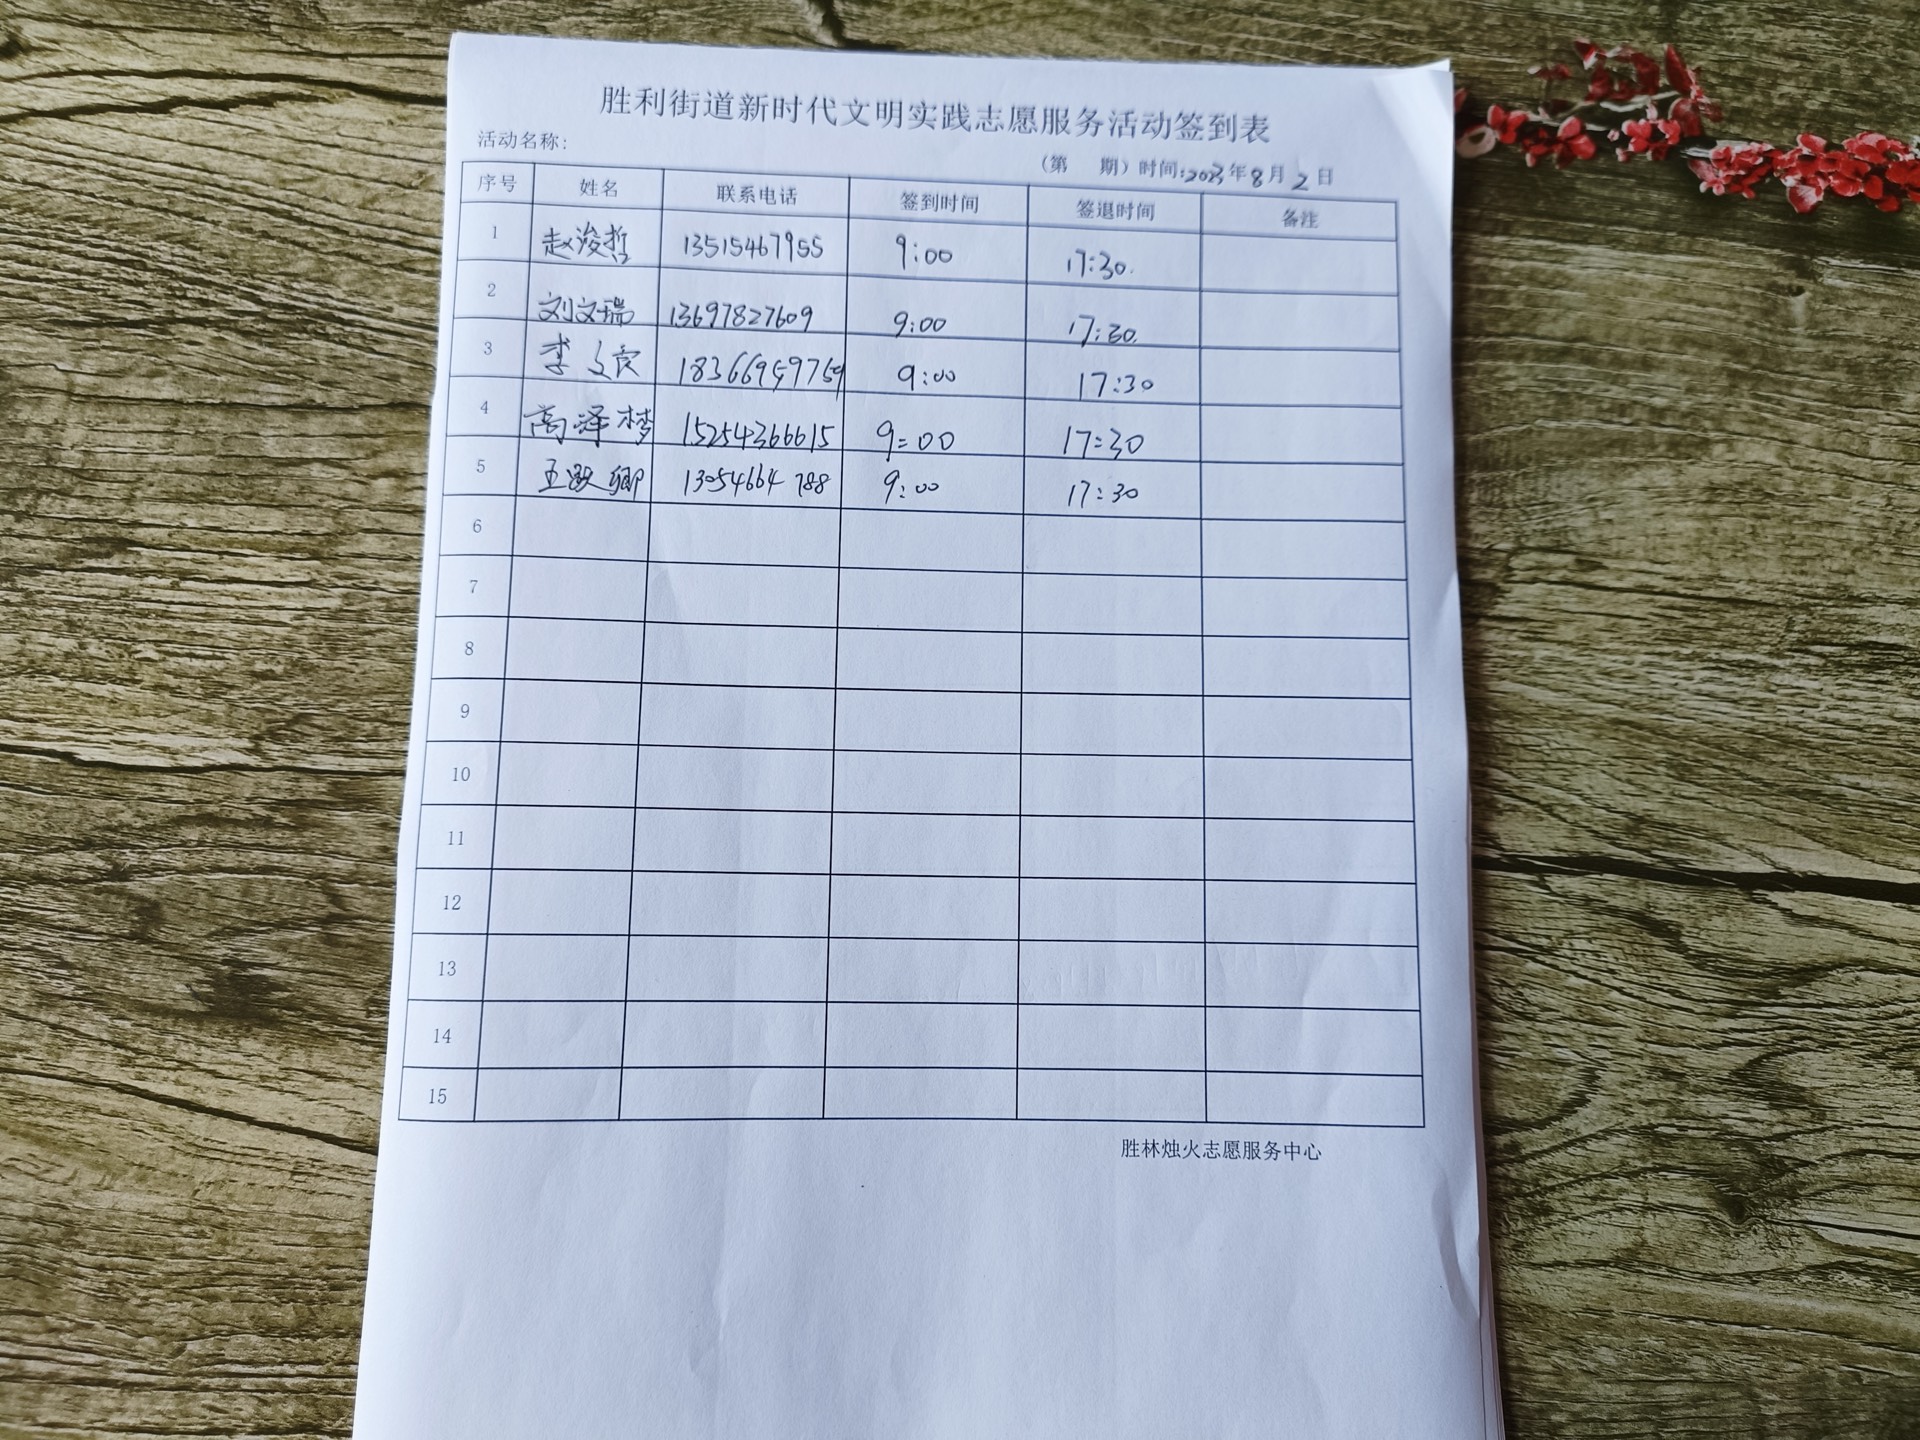 胜利街道新时代文明实践志愿服务活动签到表
活动名称:
（第 期）时间:2023年8月2日
序号 姓名 联系电话 签到时间 签退时间 备注
1 赵浚哲 13515467955 9:00 17:30
2 刘文瑞 13697827609 9:00 17:30
3 李 18366959759 9:00 17:30
4 高泽梦 15254366615 9:00 17:30
5 王 卿 13054664788 9:00 17:30
6
7
8
9
10
11
12
13
14
15
胜林烛火志愿服务中心